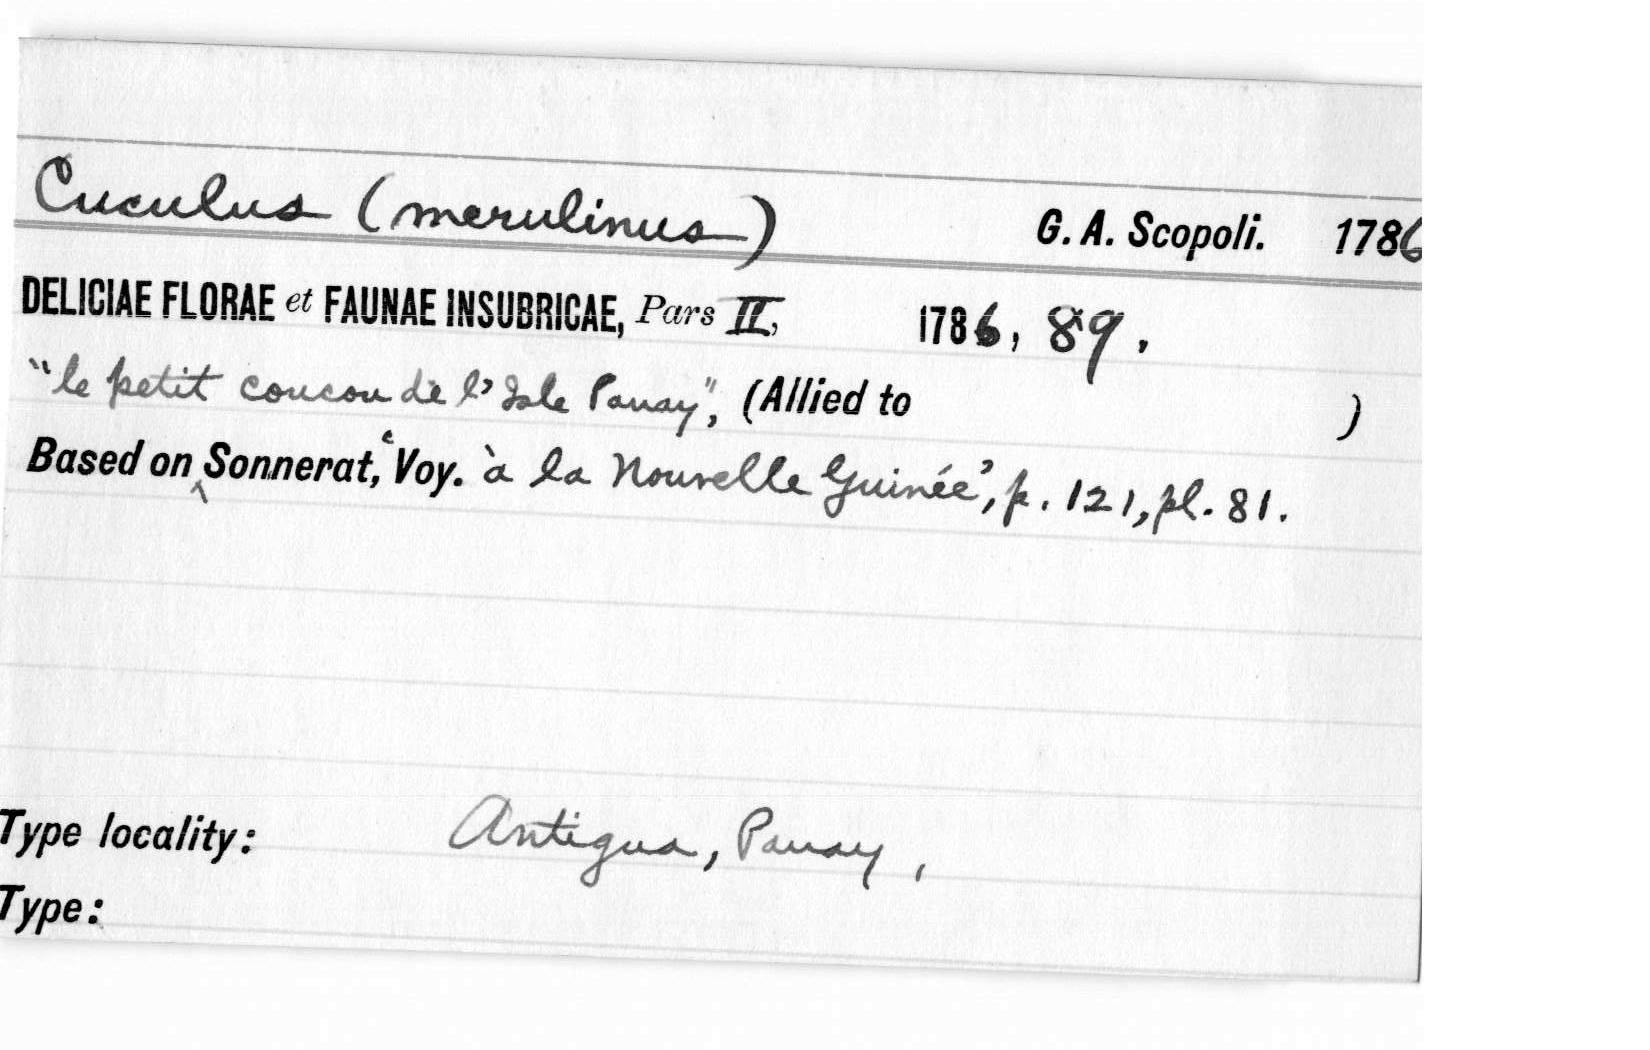 Cuculus (merulinus) G. A. Scopoli. 1786
DELICIAE FLORAE et FAUNAE INSUBRICAE, Pars II, 1786, 89.
"le petit coucou de l'Isle Panay", (Allied to )
Based on ‸ Sonnerat, 'Voy. à la Nouvelle Guinée', p. 121, pl. 81.
Type locality: Antigua, Panay,
Type: